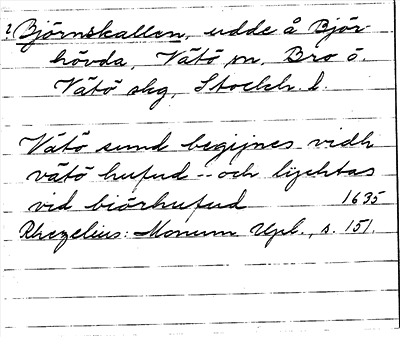 ? Björnskallen, udde å Björ-
hövda, Vätö sn, Bro ö.
Vätö skg, Stockh. l.
Vätö sund begijnes vidh
vätö hufud -- och lijchtas
vid biörhufud 1635
Rhezelius: Monum Upl., s. 151.